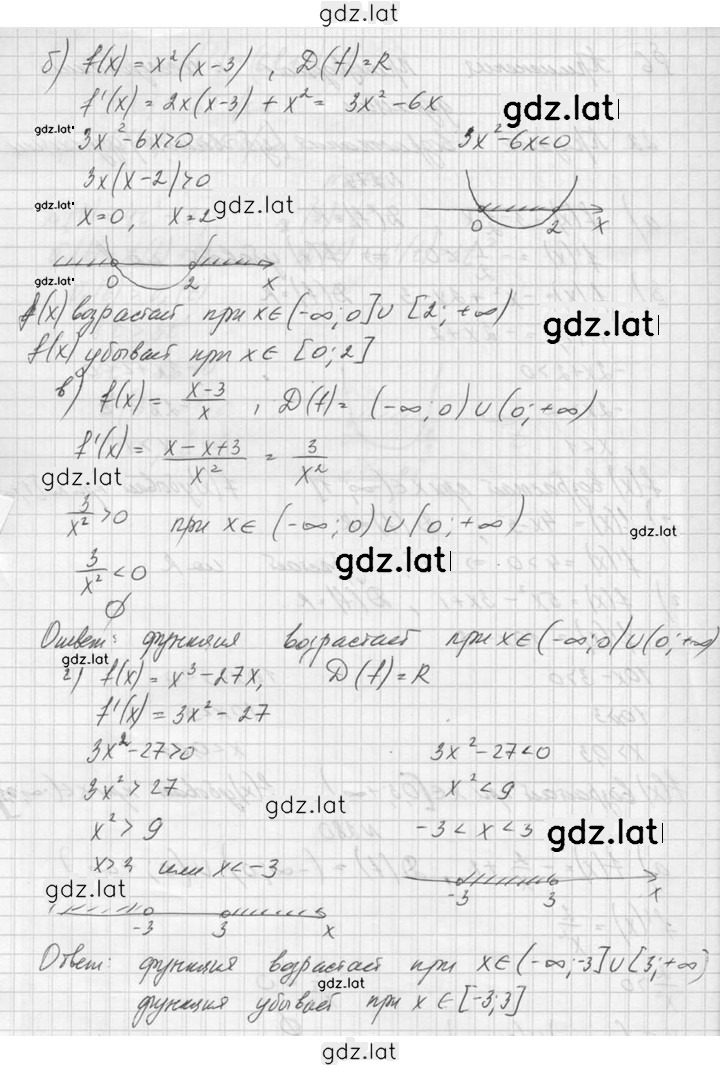 gdz.lat
б) f(x) = x²(x-3) , D(f)=R
f'(x) = 2x(x-3) + x² = 3x²-6x
gdz.lat
gdz.lat
3x²-6x>0 3x²-6x<0
3x(x-2)>0
gdz.lat
gdz.lat
x=0, x=2
0 2 x
0 2 x
gdz.lat
f(x) возрастает при x∈(-∞;0]∪[2;+∞)
gdz.lat
f(x) убывает при x∈[0;2]
в) f(x) = (x-3)/x , D(f) = (-∞;0)∪(0;+∞)
f'(x) = (x-x+3)/x² = 3/x²
gdz.lat
3/x²>0 при x∈(-∞;0)∪(0;+∞)
gdz.lat
gdz.lat
3/x²<0
∅
Ответ: функция возрастает при x∈(-∞;0)∪(0;+∞)
gdz.lat
г) f(x) = x³-27x, D(f)=R
f'(x) = 3x²-27
3x²-27>0 3x²-27<0
3x²>27 x²<9
gdz.lat
x²>9 -3<x<3
gdz.lat
x>3 или x<-3
gdz.lat
-3 3 x
-3 3 x
Ответ: функция возрастает при x∈(-∞;-3]∪[3;+∞)
gdz.lat
функция убывает при x∈[-3;3]
gdz.lat